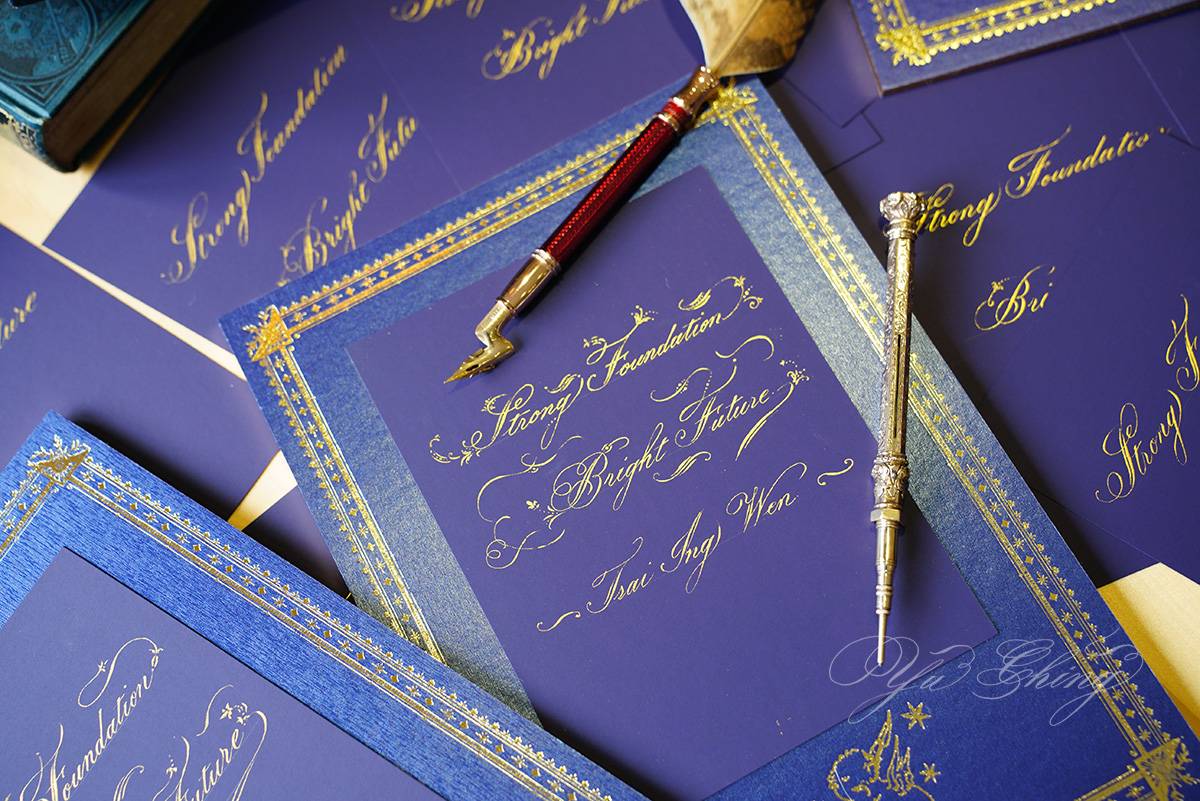 Strong Foundation
Bright
Strong Foundation
Bright Futu
Strong Foundatio
Bri
Strong F
ture
Strong Foundation
Bright Future.
Tsai Ing Wen
Foundation
Future
Yu Ching